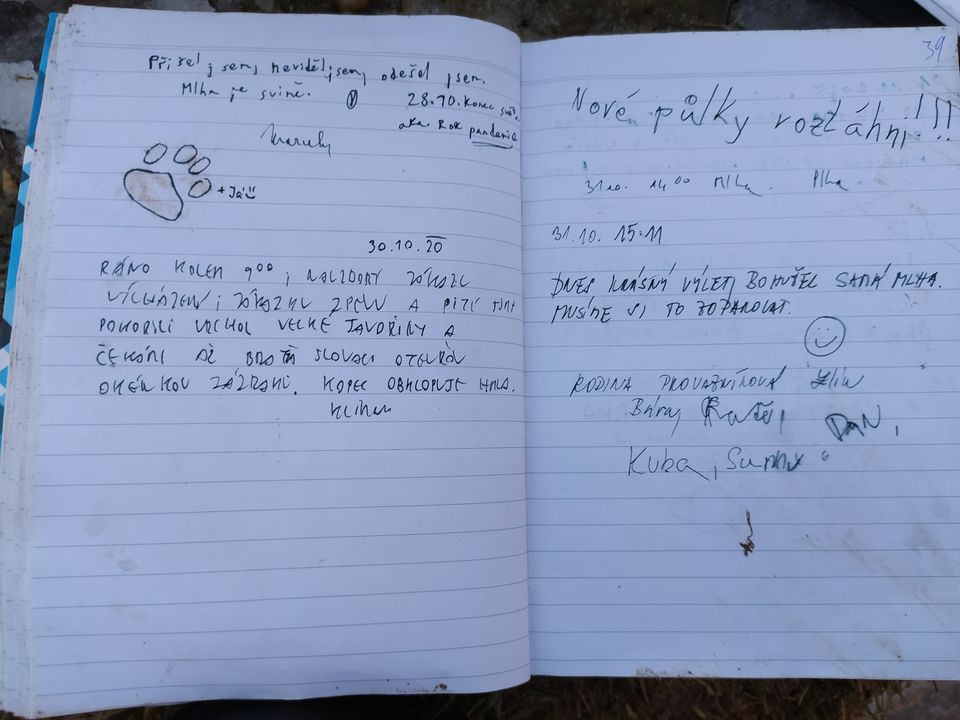 Přišel jsem, neviděl jsem, odešel jsem.
Mlha je svině.
28.10. Konec
aka. Rok pandemie
+ Já!!
30.10.20
RÁNO KOLEM 9⁰⁰ ; NAVZDORY ZÁKAZU
VYCHÁZENÍ ; ZÁKAZU ZPĚVU A PITÍ JSME
POKOŘILI VRCHOL VELKÉ JAVOŘINY A
ČEKÁNÍ AŽ BRATŘI SLOVACI OTEVŘOU
OKÉNKO ZÁZRAKŮ. KOPEC OBKLOPUJE MLHA.
39
Nové půlky roztáhni!!!
31.10. 14⁰⁰ Mlha.
31.10. 15:11
DNES KRÁSNÝ VÝLET, BOHUŽEL SAMÁ MLHA.
MUSÍME SI TO ZOPAKOVAT.
RODINA PROVAZNÍKOVÁ Zlín
Bára, Kačí, DAN,
Kuba,